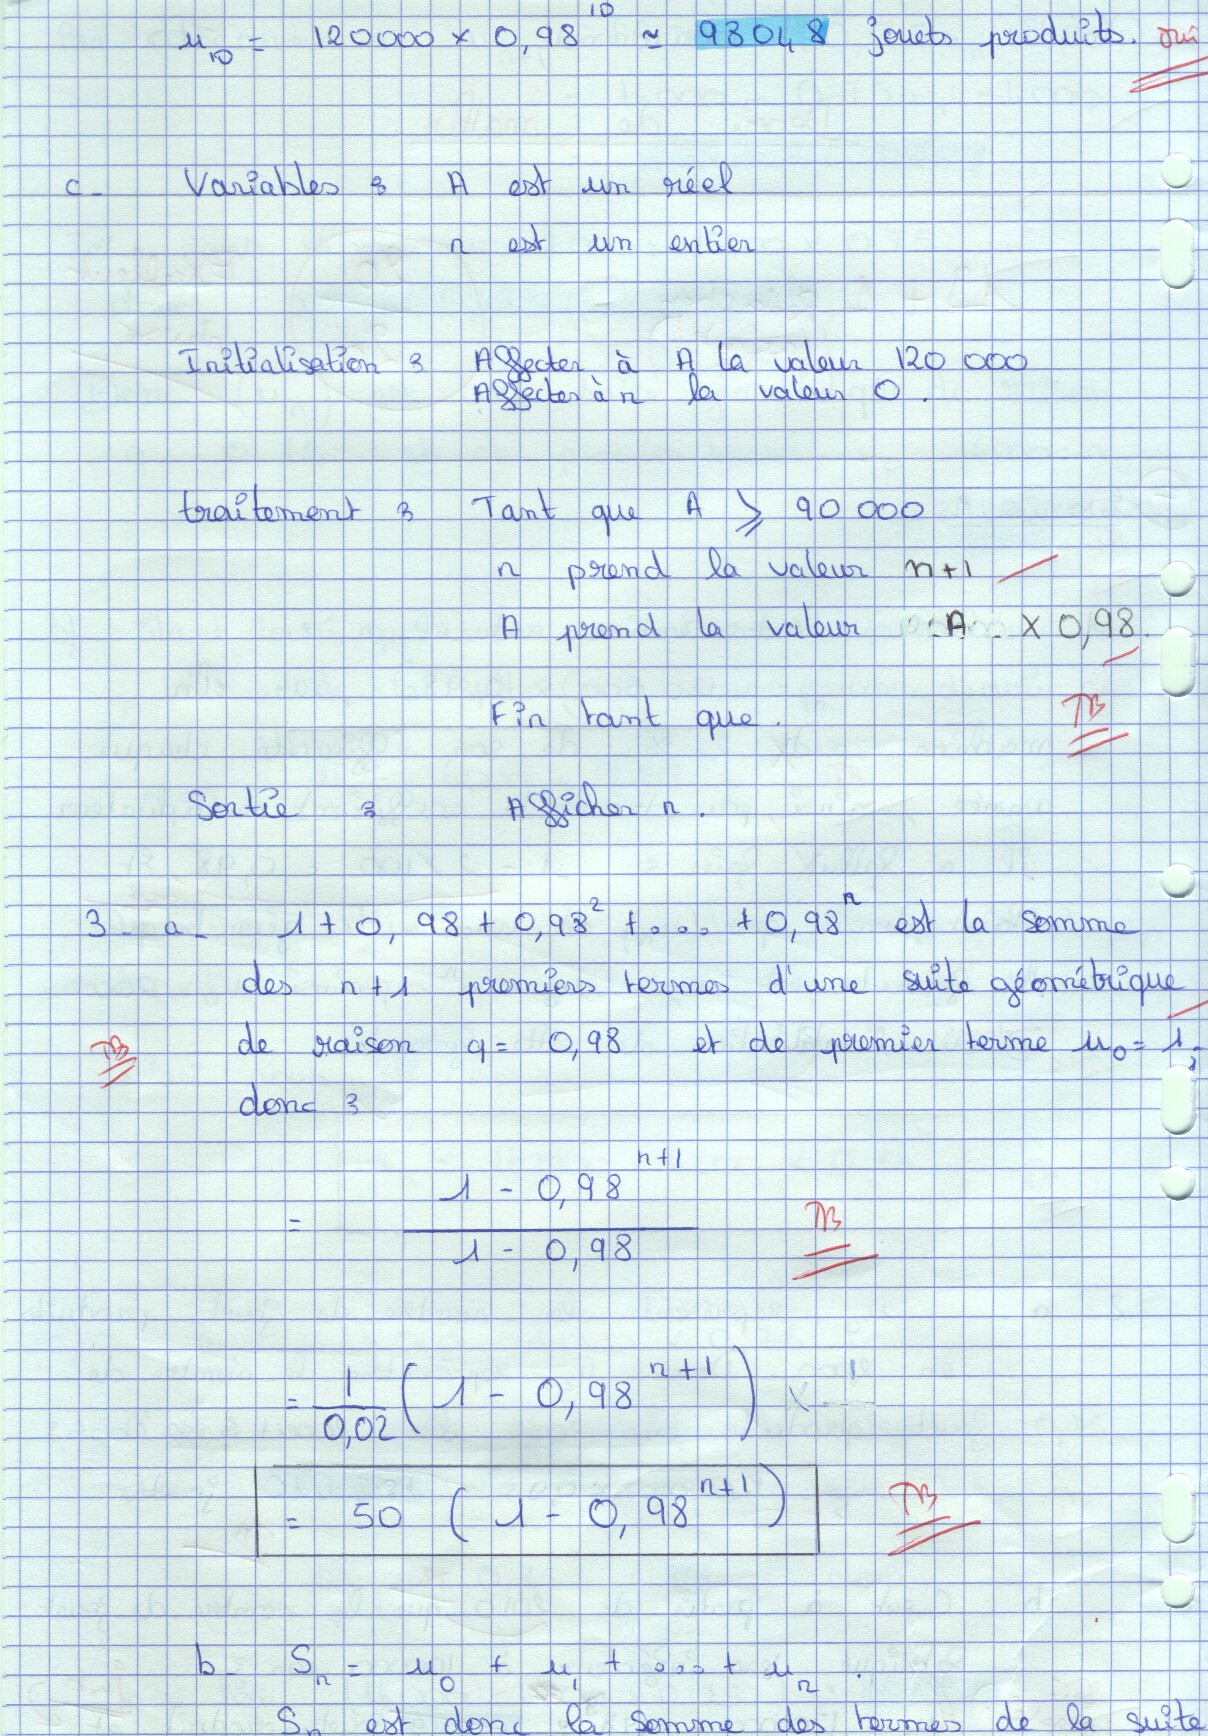 u₁₀ = 120000 × 0,98¹⁰ ≃ 98048 jouets produits. oui
c- Variables : A est un réel
n est un entier
Initialisation : Affecter à A la valeur 120 000
Affecter à n la valeur 0.
traitement : Tant que A ⩾ 90 000
n prend la valeur n+1
A prend la valeur A × 0,98.
Fin tant que. TB
Sortie : Afficher n.
3- a- 1 + 0,98 + 0,98² + .... + 0,98ⁿ est la somme
des n+1 premiers termes d'une suite géométrique
TB de raison q = 0,98 et de premier terme u₀ = 1,
donc :
= (1 - 0,98ⁿ⁺¹) / (1 - 0,98) TB
= 1/0,02 (1 - 0,98ⁿ⁺¹)
= 50 (1 - 0,98ⁿ⁺¹) TB
b- Sₙ = u₀ + u₁ + .... + uₙ.
Sₙ est donc la somme des termes de la suite